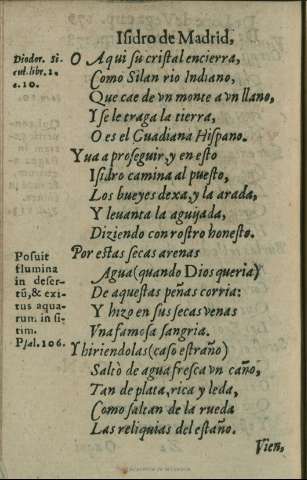 Isidro de Madrid,
Diodor. Si-
cul. libr. 1.
c. 10.
O Aqui su cristal encierra,
Como Silan rio Indiano,
Que cae de vn monte a vn llano,
Y se le traga la tierra,
O es el Guadiana Hispano.
Yua a proseguir, y en esto
Isidro camina al puesto,
Los bueyes dexa, y la arada,
Y leuanta la aguijada,
Diziendo con rostro honesto.
Posuit
flumina
in deser-
tũ, & exi-
tus aqua-
rum in si-
tim.
Psal. 106.
Por estas secas arenas
Agua (quando Dios queria)
De aquestas peñas corria:
Y hizo en sus secas venas
Vna famosa sangria.
Y hiriendolas (caso estraño)
Saltò de agua fresca vn caño,
Tan de plata, rica y leda,
Como saltan de la rueda
Las reliquias del estaño.
Vien,